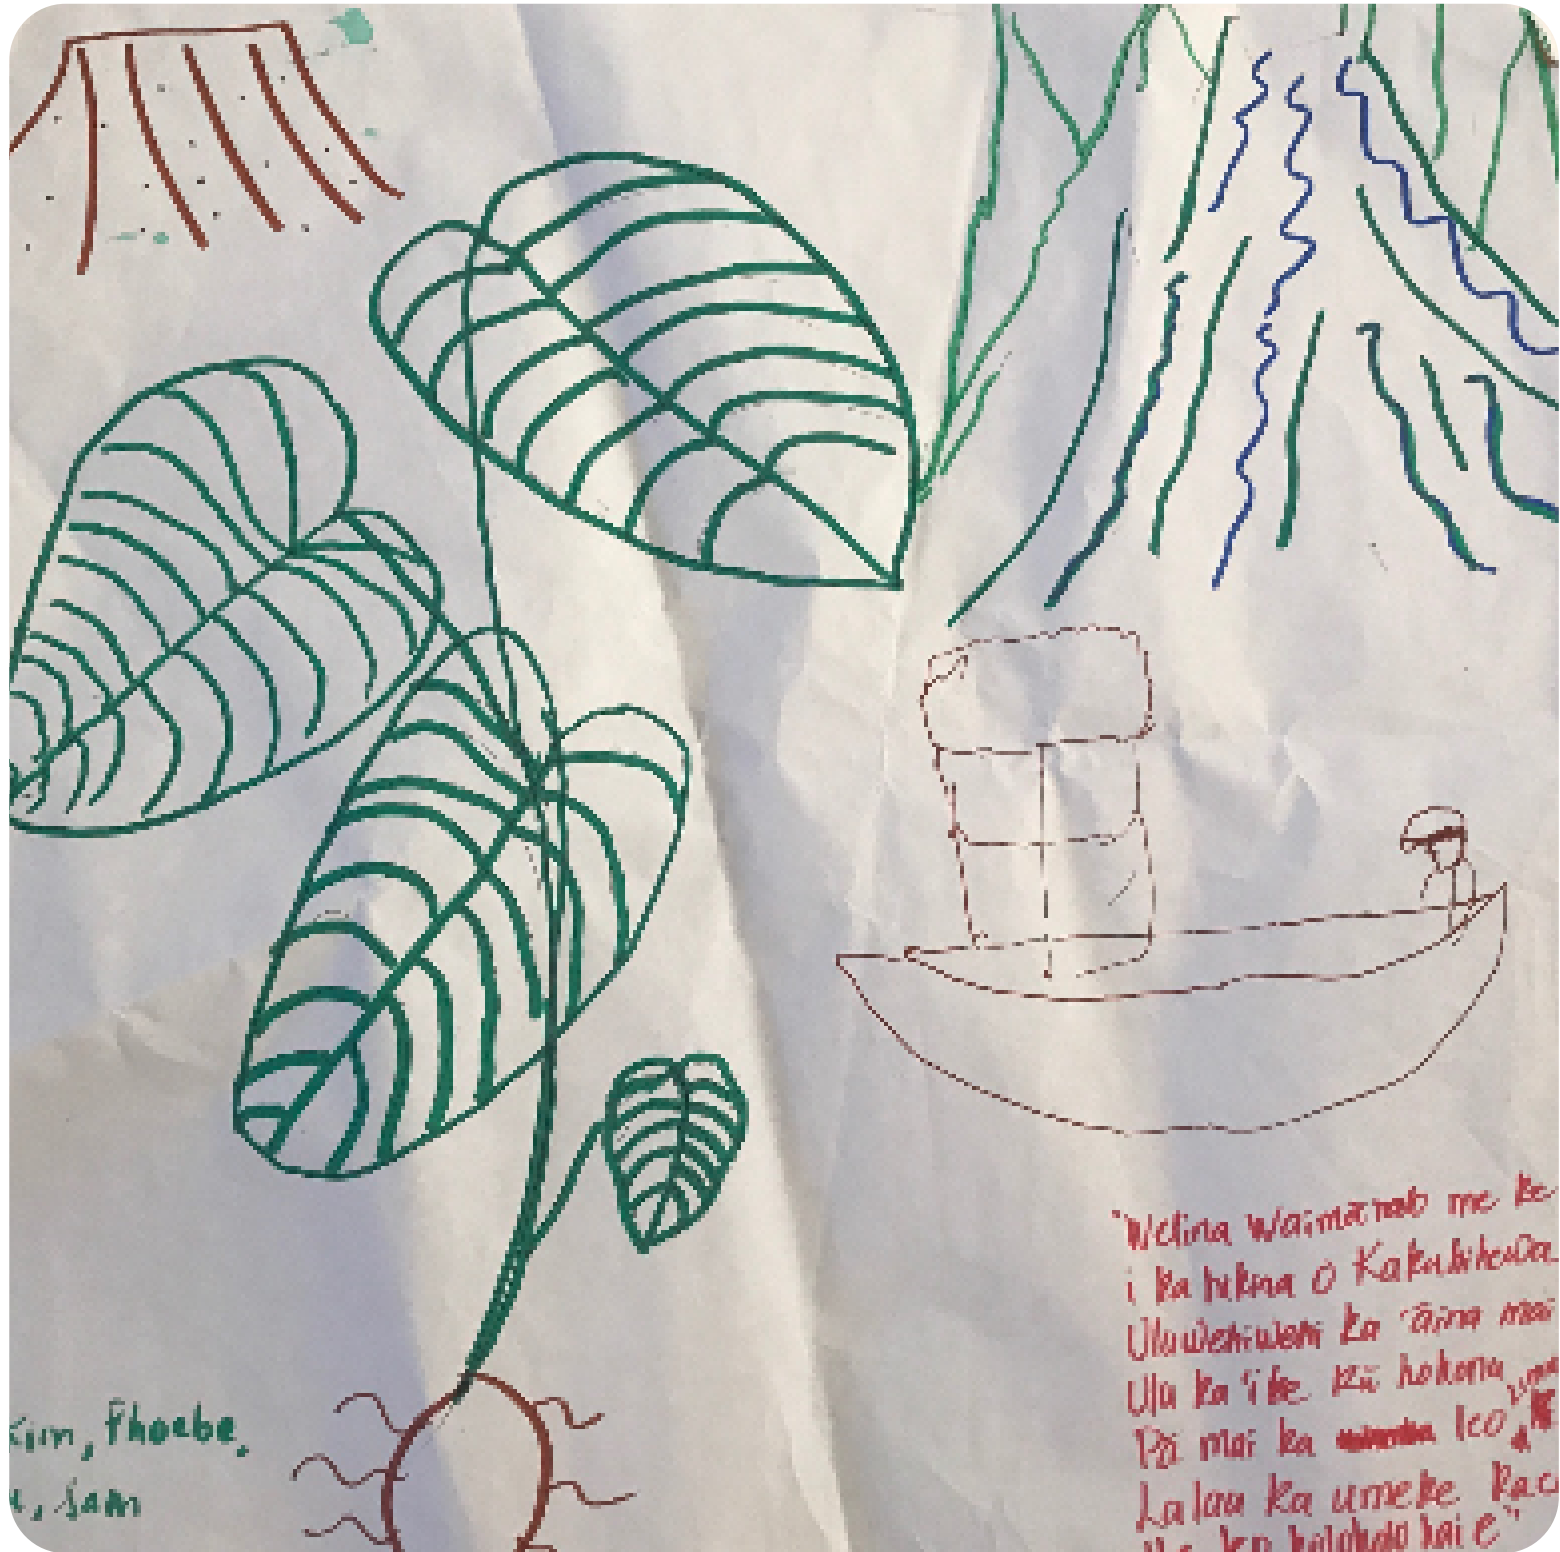 Kim, Phoebe,
, Sam
"Welina Waimānalo me ke
i ka hikina o Kakuhihewa
Uluwehiwehi ka ʻāina mai
Ulu ka ʻike kū hokona
Pā mai ka leo
Lalau ka umeke
holoholo kai e"